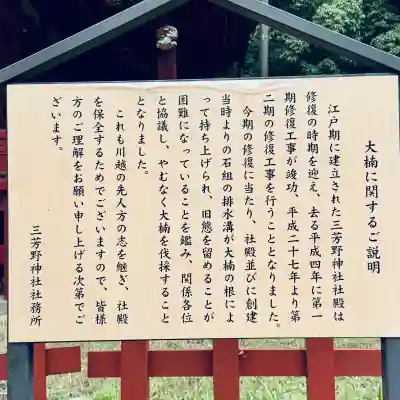 大楠に関するご説明
江戸期に建立された三芳野神社社殿は
修復の時期を迎え、去る平成四年に第一
期修復工事が竣功、平成二十七年より第
二期の修復工事を行うこととなりました。
今期の修復に当たり、社殿並びに創建
当時よりの石組の排水溝が大楠の根によ
って持ち上げられ、旧態を留めることが
困難になっていることを鑑み、関係各位
と協議し、やむなく大楠を伐採すること
となりました。
これも川越の先人方の志を継ぎ、社殿
を保全するためでございますので、皆様
方のご理解をお願い申し上げる次第でご
ざいます。
三芳野神社社務所